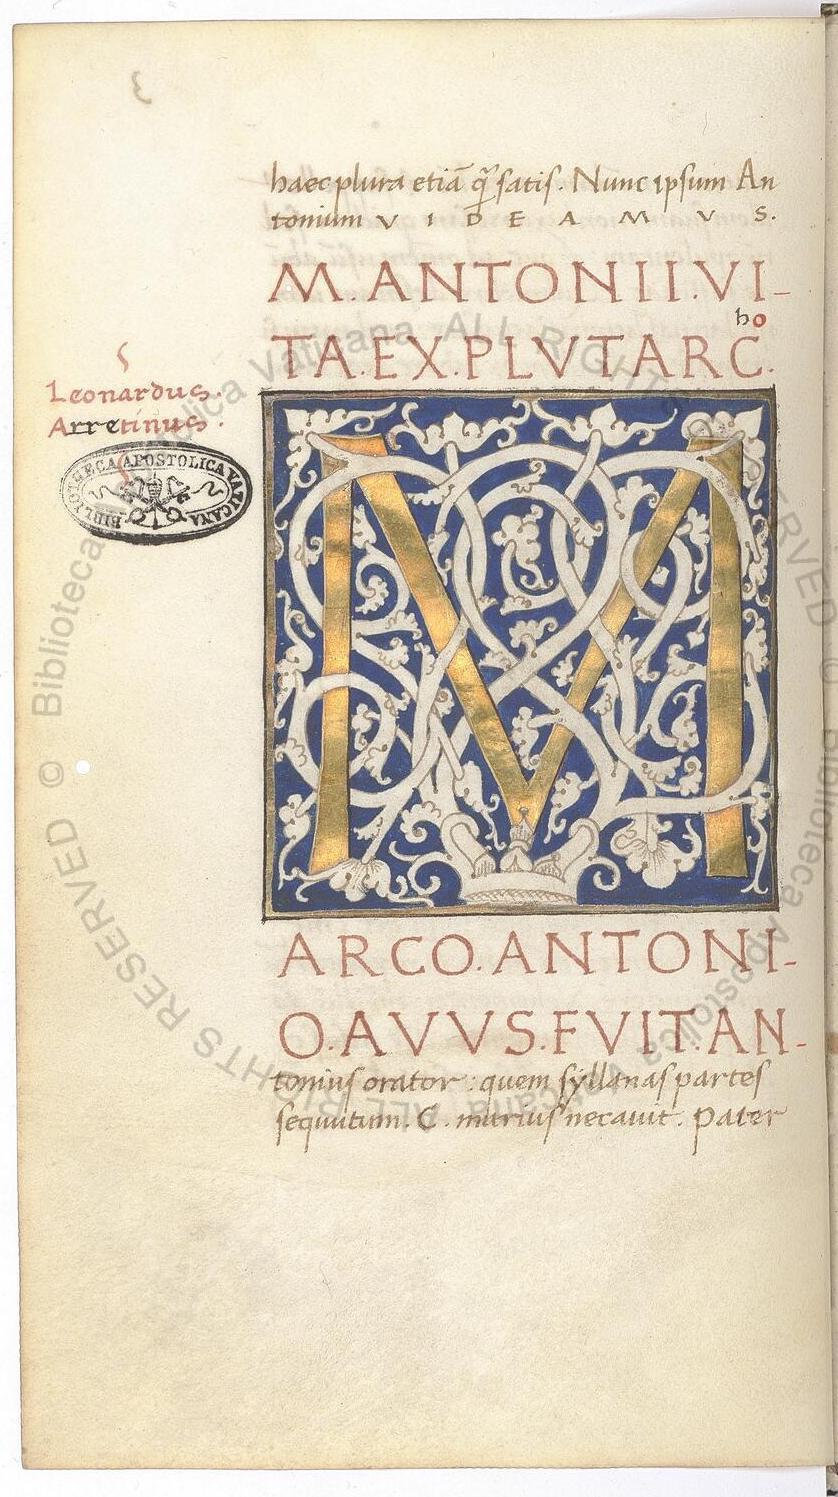 haec plura etiā qr̄ satis. Nunc ipsum An
tonium V I D E A M V S.
M. ANTONII. VI-
ho
TA. EX. PLVTARC.
Leonardus.
Arretinus.
BIBLIOTHECA APOSTOLICA VATICANA
M
ARCO. ANTONI-
O. AVVS. FVIT. AN-
tonius orator: quem syllanas partes
sequutum. C. marius necauit. Pater
© Biblioteca Apostolica Vaticana ALL RIGHTS RESERVED